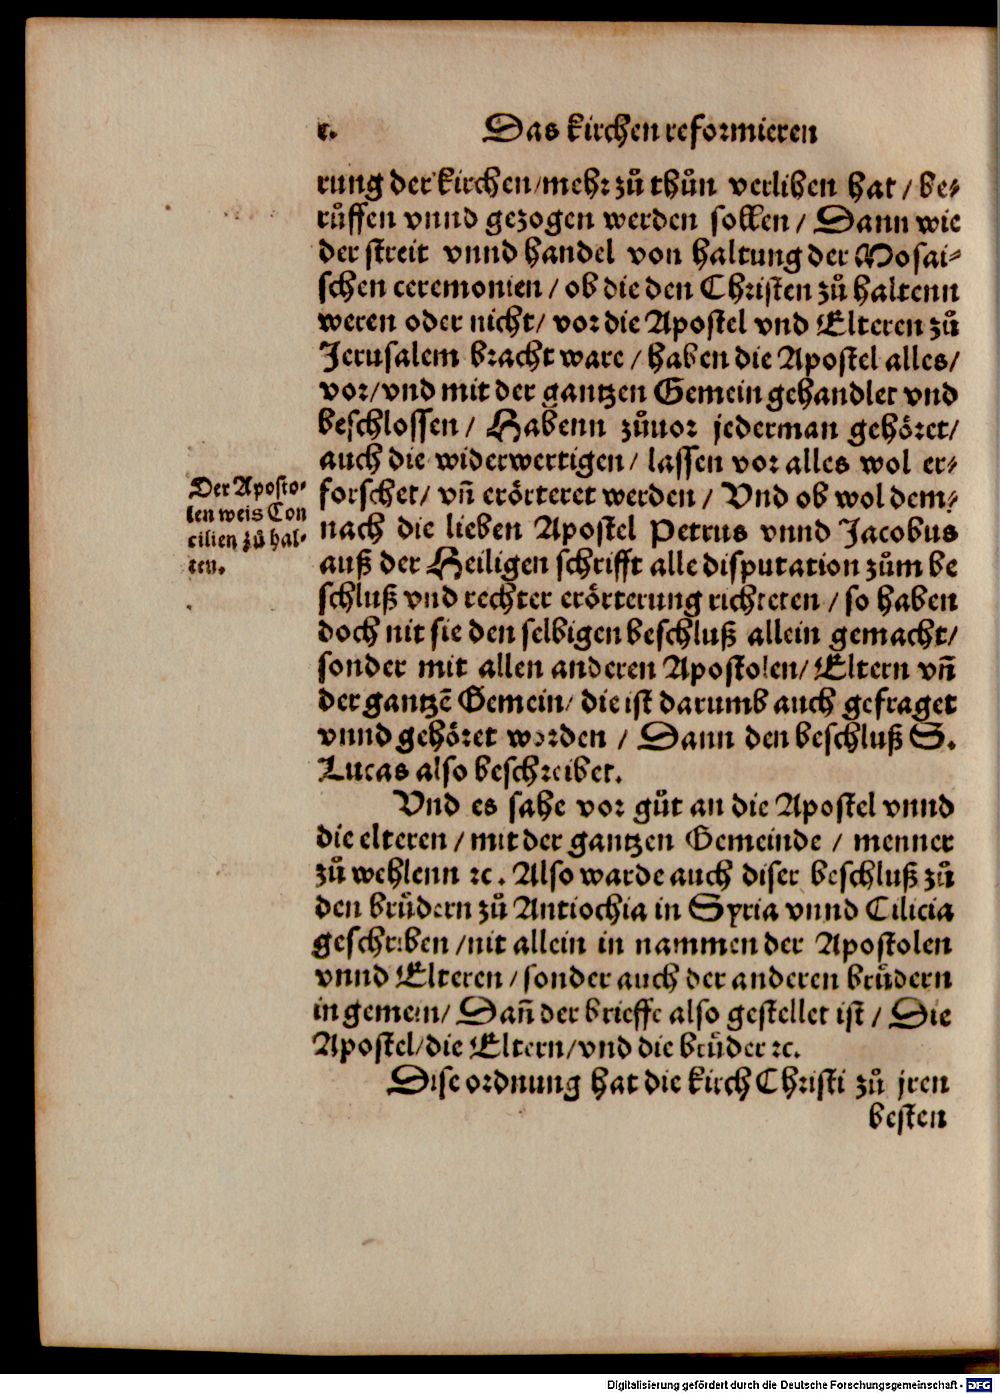 r. Das kirchen reformieren
rung der kirchen/mehr zů thůn verlihen hat / be⸗
růffen vnnd gezogen werden sollen / Dann wie
der streit vnnd handel von haltung der Mosai⸗
schen ceremonien / ob die den Christen zů haltenn
weren oder nicht/ vor die Apostel vnd Elteren zů
Jerusalem bracht ware / haben die Apostel alles/
vor/vnd mit der gantzen Gemein gehandlet vnd
beschlossen / Habenn zůuor jederman gehöret/
auch die widerwertigen / lassen vor alles wol er⸗
forschet/ vn̄ erörteret werden / Vnd ob wol dem⸗
nach die lieben Apostel Petrus vnnd Jacobus
auß der Heiligen schrifft alle disputation zům be
schluß vnd rechter erörterung richteten / so haben
doch nit sie den selbigen beschluß allein gemacht/
sonder mit allen anderen Apostolen/ Eltern vn̄
der gantzē Gemein/ die ist darumb auch gefraget
vnnd gehöret worden / Dann den beschluß S.
Lucas also beschreibet.
Der Aposto⸗
len weis Con
cilien zů hal⸗
ten.
Vnd es sahe vor gůt an die Apostel vnnd
die elteren / mit der gantzen Gemeinde / menner
zů wehlenn ꝛc. Also warde auch diser beschluß zů
den brůdern zů Antiochia in Syria vnnd Cilicia
geschriben /nit allein in nammen der Apostolen
vnnd Elteren / sonder auch der anderen brůdern
in gemein/ Dan̄ der brieffe also gestellet ist / Die
Apostel/die Eltern/vnd die brůder ꝛc.
Dise ordnung hat die kirch Christi zů jren
besten
Digitalisierung gefördert durch die Deutsche Forschungsgemeinschaft - DFG